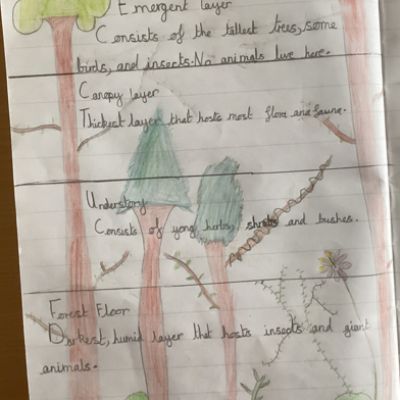 Emergent layer
Consists of the tallest trees, some
birds, and insects. No animals live here.
Canopy layer
Thickest layer that hosts most flora and fauna.
Understory
Consists of yong, herbs, shrubs and bushes.
Forest Floor
Darkest, humid layer that hosts insects and giant
animals.